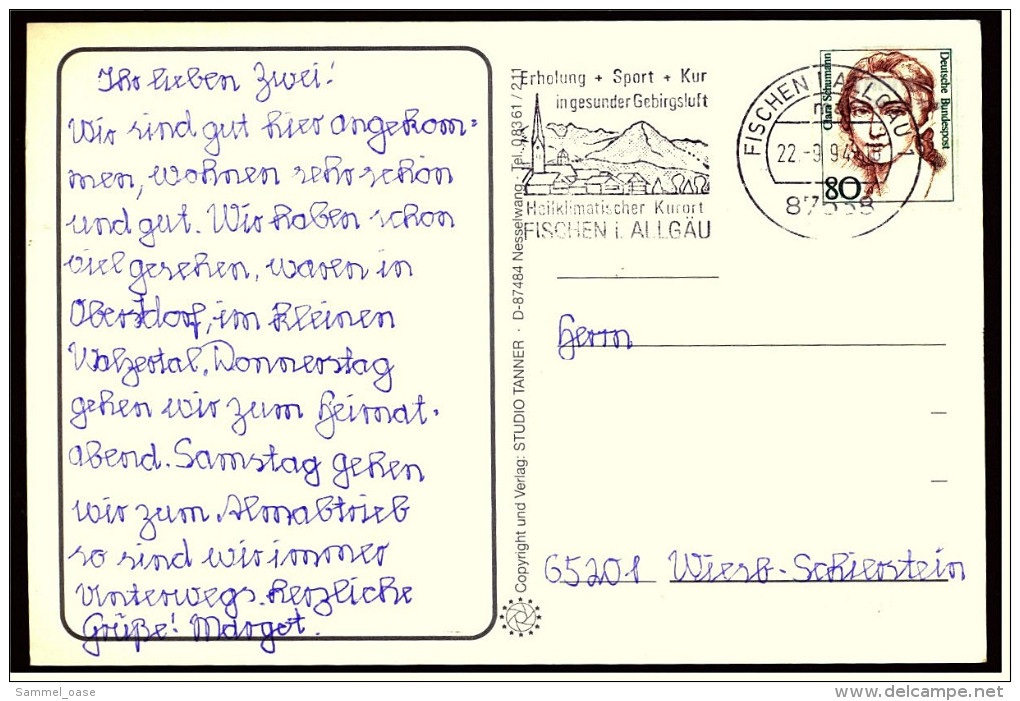 Ihr lieben Zwei!
Wir sind gut hier angekom=
men, wohnen sehr schön
und gut. Wir haben schon
viel gesehen, waren in
Oberstdorf, im kleinen
Walzertal, Donnerstag
gehen wir zum Heimat-
abend. Samstag gehen
wir zum Almabtrieb
so sind wir immer
Unterwegs. herzliche
Grüße! Margot.
Copyright und Verlag: STUDIO TANNER · D-87484 Nesselwang, Tel. 0 83 61 / 2 11
Erholung + Sport + Kur
in gesunder Gebirgsluft
Heilklimatischer Kurort
FISCHEN i. ALLGÄU
FISCHEN I ALLGÄU 1
22.-9.94
Clara Schumann
Deutsche Bundespost
80
Herrn
65201 Wiesb.-Schierstein
Sammel_oase
delcampe.net